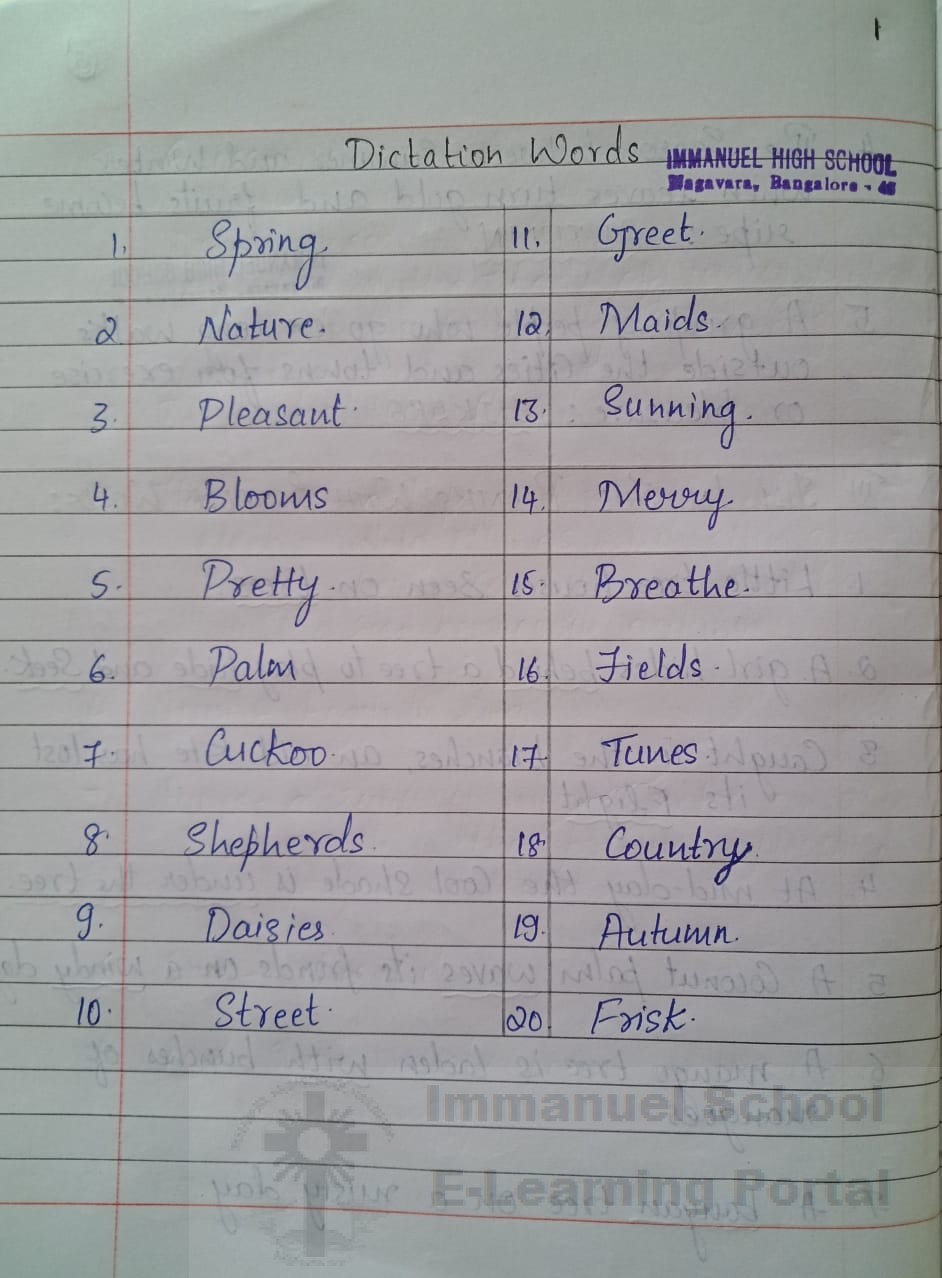 1
Dictation Words
IMMANUEL HIGH SCHOOL
Nagavara, Bangalore - 45
1. Spring. 11. Greet.
2 Nature. 12. Maids.
3. Pleasant. 13. Sunning.
4. Blooms 14. Merry
5. Pretty. 15. Breathe.
6. Palm 16. Fields.
7. Cuckoo. 17. Tunes.
8. Shepherds. 18. Country.
9. Daisies. 19. Autumn.
10. Street. 20. Frisk.
Immanuel School
E-Learning Portal